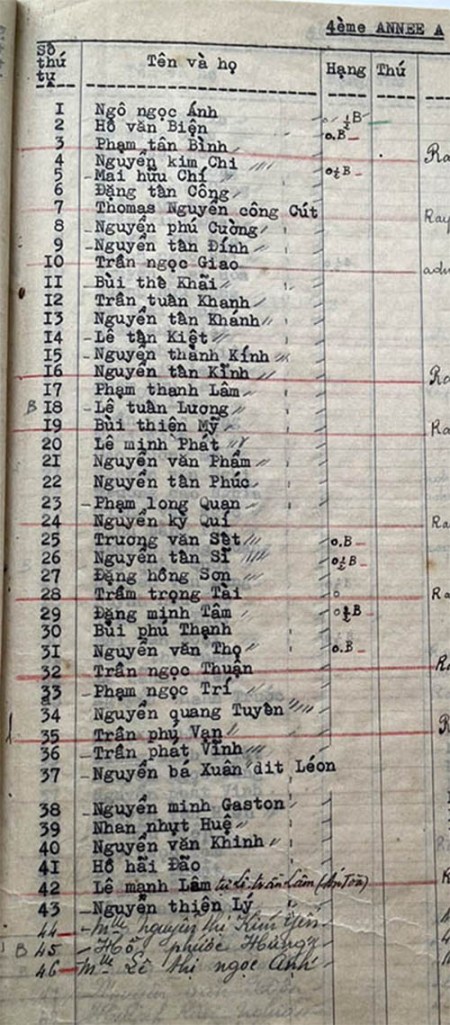 4ème ANNEE A
Số thứ tự Tên và họ Hạng Thú
I Ngô ngọc Ánh ½B
2 Hồ văn Biện o.B
3 Phạm tấn Bình
4 Nguyễn kim Chi
5 Mai hữu Chí o½B
6 Đặng tấn Công
7 Thomas Nguyễn công Cút Ray
8 Nguyễn phú Cường
9 Nguyễn tấn Đính
IO Trần ngọc Giao
II Bùi thế Khãi
I2 Trần tuấn Khanh
I3 Nguyễn tấn Khánh
I4 Lê tấn Kiệt
I5 Nguyễn thành Kính
I6 Nguyễn tấn Kỉnh
I7 Phạm thanh Lâm
B I8 Lê tuấn Lương
I9 Bùi thiện Mỹ
20 Lê minh Phát
2I Nguyễn văn Phẩm
22 Nguyễn tấn Phúc
23 Phạm long Quan
24 Nguyễn kỳ Quí
25 Trương văn Sệt o.B
26 Nguyễn tấn Sĩ o½B
27 Đặng hồng Sơn
28 Trầm trọng Tài
29 Đặng minh Tâm o½B
30 Bùi phú Thạnh
3I Nguyễn văn Thọ o.B
32 Trần ngọc Thuận
33 Phạm ngọc Trí
34 Nguyễn quang Tuyên
35 Trần phú Vạn
36 Trần phát Vĩnh
37 Nguyễn bá Xuân dit Léon
38 Nguyễn minh Gaston
39 Nhan nhựt Huệ
40 Nguyễn văn Khinh
4I Hồ hãi Đão
42 Lê mạnh Lâm
43 Nguyễn thiện Lý
44 Mlle nguyễn thị Kim Yến
B 45 Hồ phước Hùng
46 Mlle Lê thị ngọc Anh